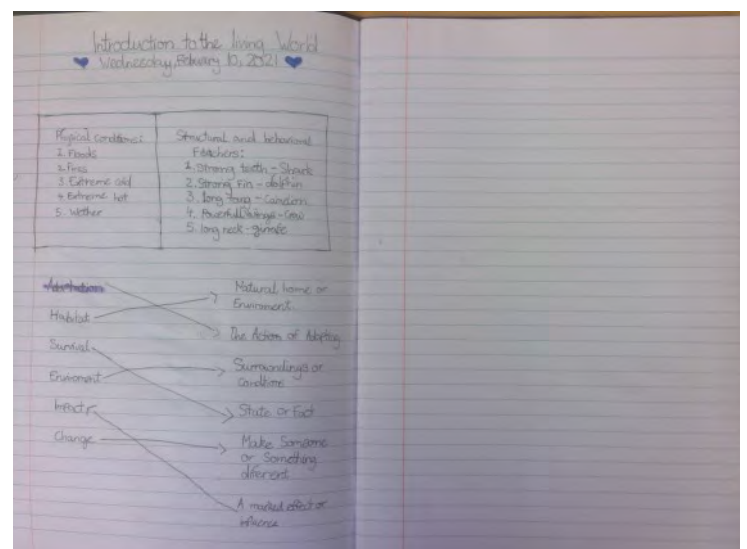 Introduction to the living World
Wednesday, February 10, 2021
Physical conditions:
1. Floods
2. Fires
3. Extreme cold
4. Extreme hot
5. Wether
Structural and behavioral
Feachers:
1. Strong teeth - Shark
2. Strong Fin - dolphin
3. long tong -
4. Powerful wings - Crow
5. long neck - giraffe
Adaptation
Habitat
Survival
Enviroment
Impact
Change
Natural home or
Enviroment
The Action of Adapting
Surroundings or
State or Fact
Make Someone
or Something
different
A marked effect or
influence